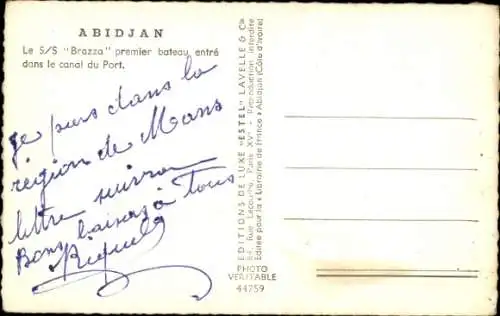 ABIDJAN
Le S/S "Brazza" premier bateau entré
dans le canal du Port.
je suis dans la
région de Mans
lettre suivra
Bons baisers à Tous
EDITIONS DE LUXE "ESTEL" LAVELLE & Cie
84, Rue Lecourbe, Paris XVe - Reproduction interdite
Editée pour la « Librairie de France » Abidjan (Côte d'Ivoire)
PHOTO
VERITABLE
44759